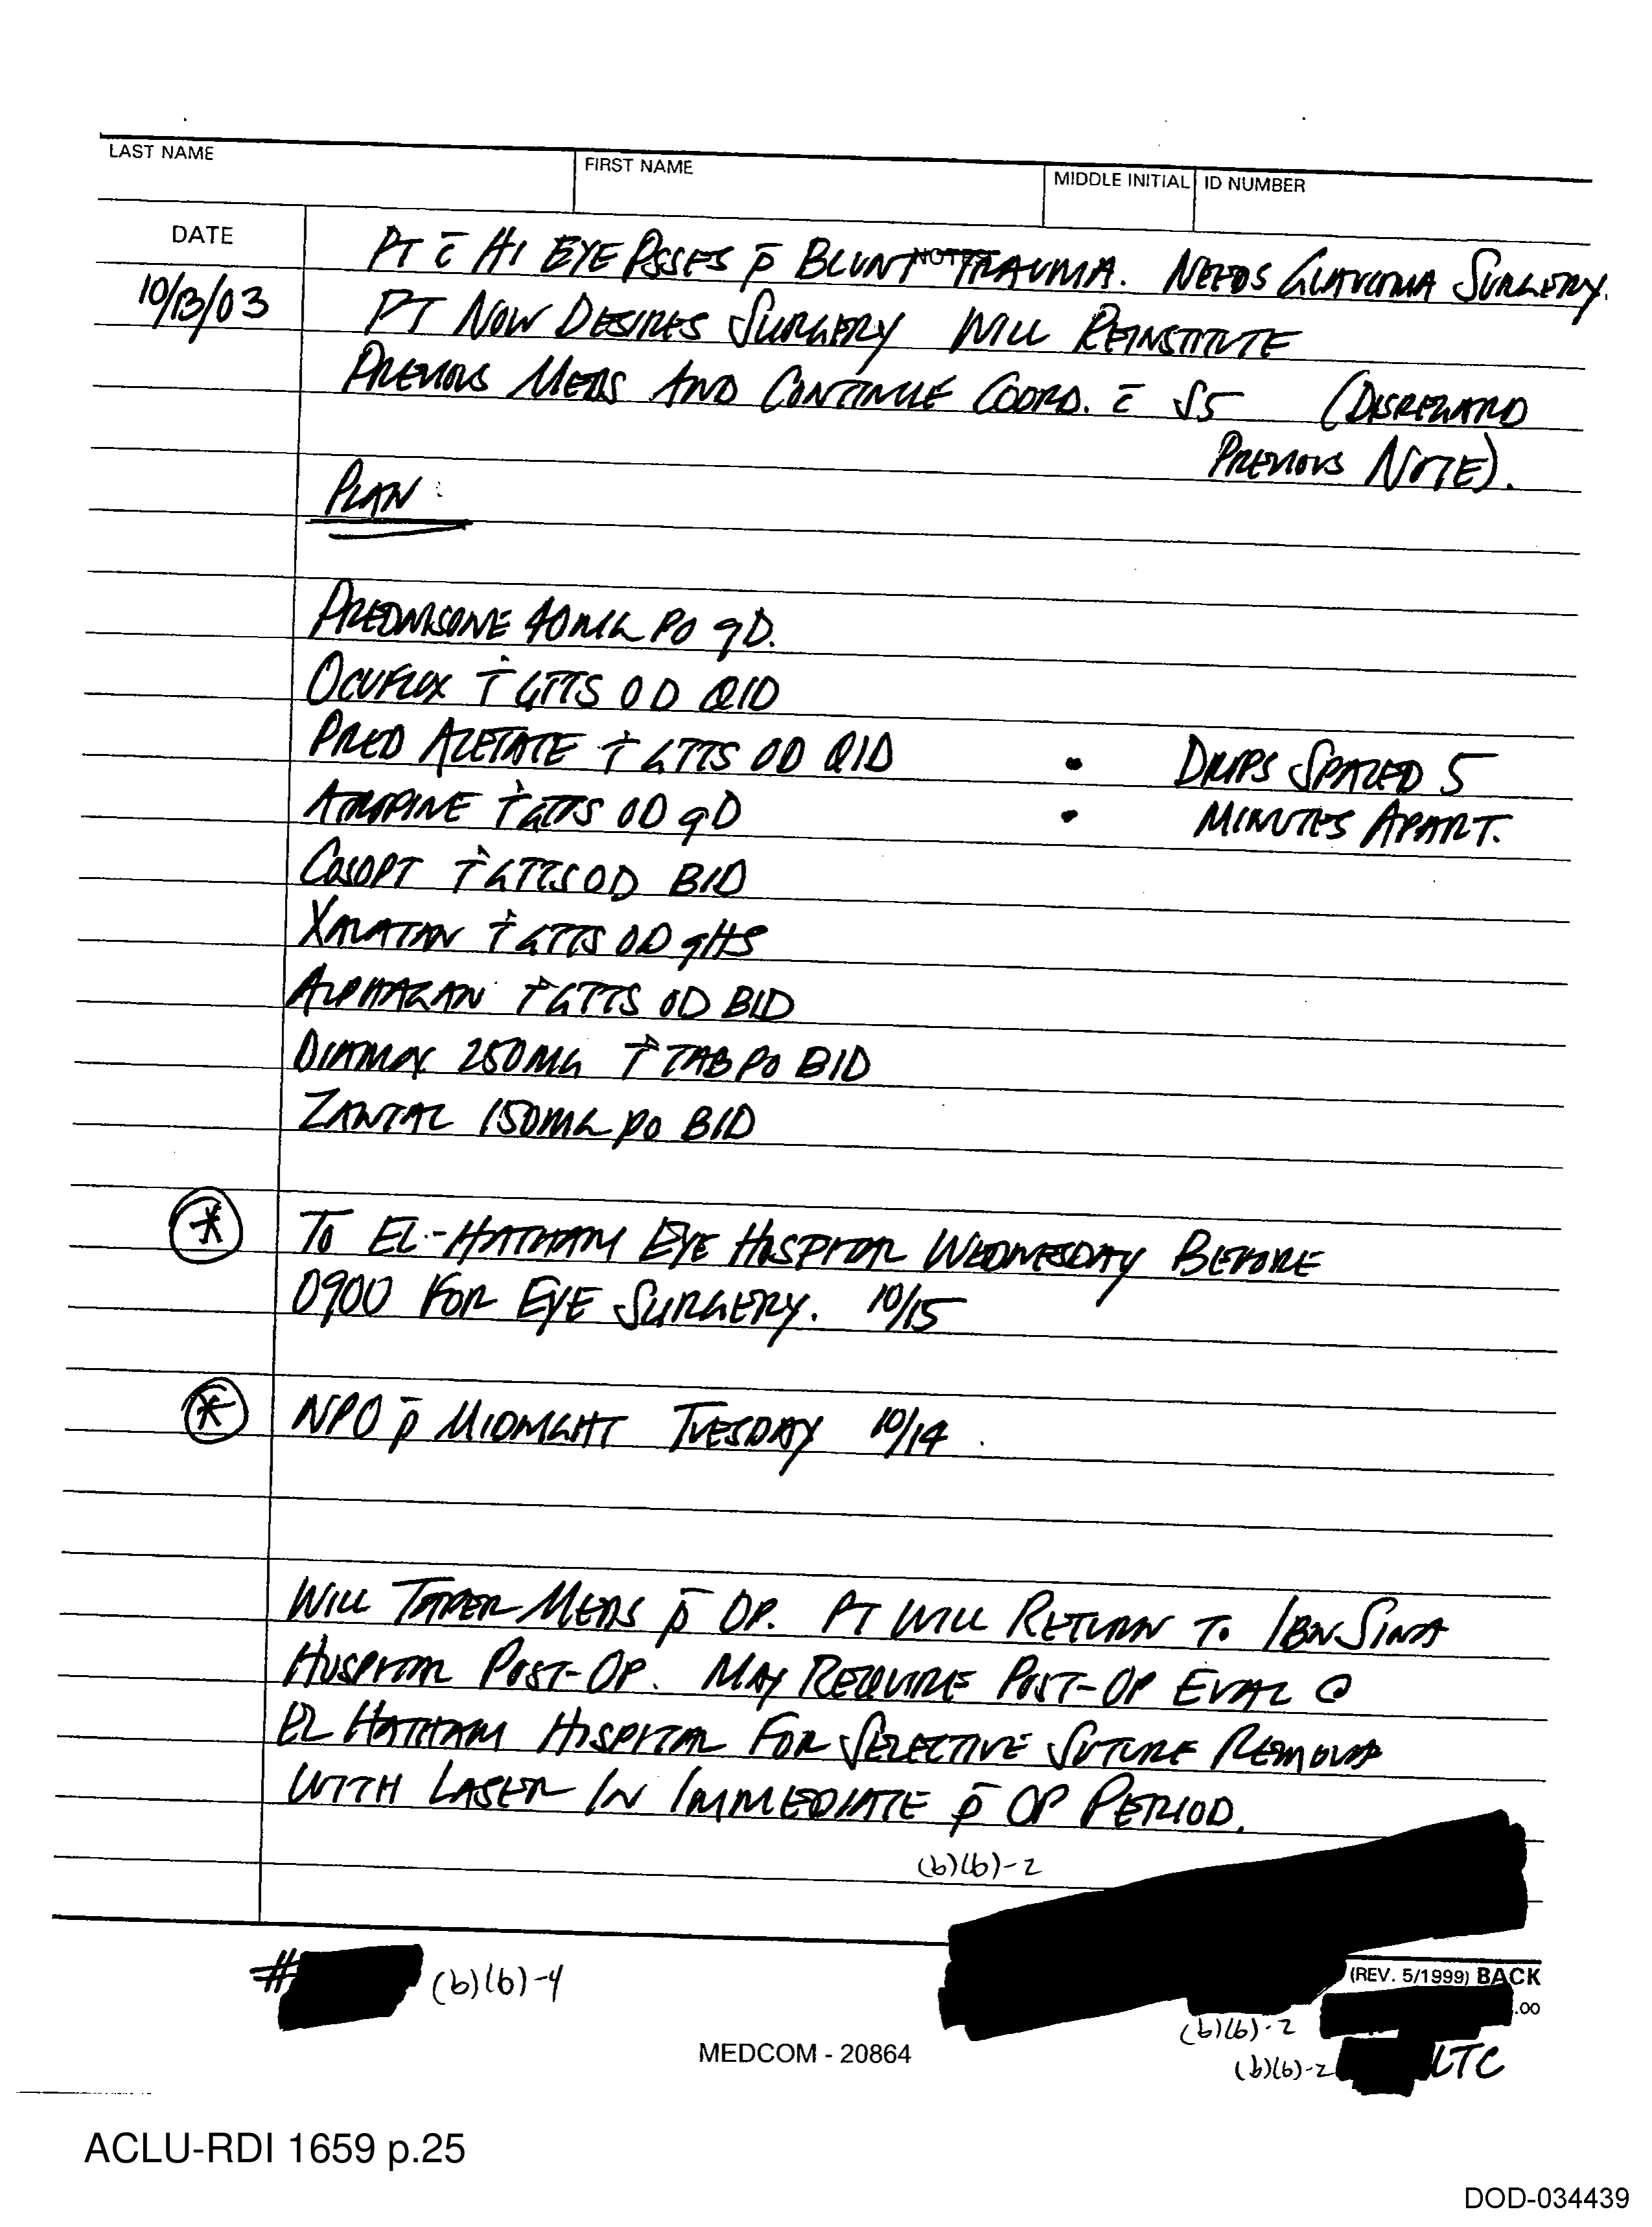 LAST NAME FIRST NAME MIDDLE INITIAL ID NUMBER
DATE NOTES
PT c̄ HI EYE PSSES p̄ BLUNT TRAUMA. NEEDS GLAUCOMA SURGERY.
10/13/03 PT NOW DESIRES SURGERY WILL REINSTITUTE
PREVIOUS MEDS AND CONTINUE COORD. c̄ S5 (DISREGARD
PREVIOUS NOTE).
PLAN:
PREDNISONE 40MG PO qD.
OCUFLOX † GTTS OD QID
PRED ACETATE † GTTS OD QID • DROPS SPACED 5
ATROPINE † GTTS OD qD • MINUTES APART.
COSOPT † GTTS OD BID
XALATAN † GTTS OD qHS
ALPHAGAN † GTTS OD BID
DIAMOX 250MG † TAB PO BID
ZANTAC 150MG PO BID
* TO EL-HATHAM EYE HOSPITAL WEDNESDAY BEFORE
0900 FOR EYE SURGERY. 10/15
* NPO p̄ MIDNIGHT TUESDAY 10/14.
WILL TAPER MEDS p̄ OP. PT WILL RETURN TO IBN SINA
HOSPITAL POST-OP. MAY REQUIRE POST-OP EVAL @
EL HATHAM HOSPITAL FOR SELECTIVE SUTURE REMOVAL
WITH LASER IN IMMEDIATE p̄ OP PERIOD.
(b)(6)-2
# (b)(6)-4
(REV. 5/1999) BACK
.00
(b)(6)-2
MEDCOM - 20864
(b)(6)-2 LTC
ACLU-RDI 1659 p.25
DOD-034439